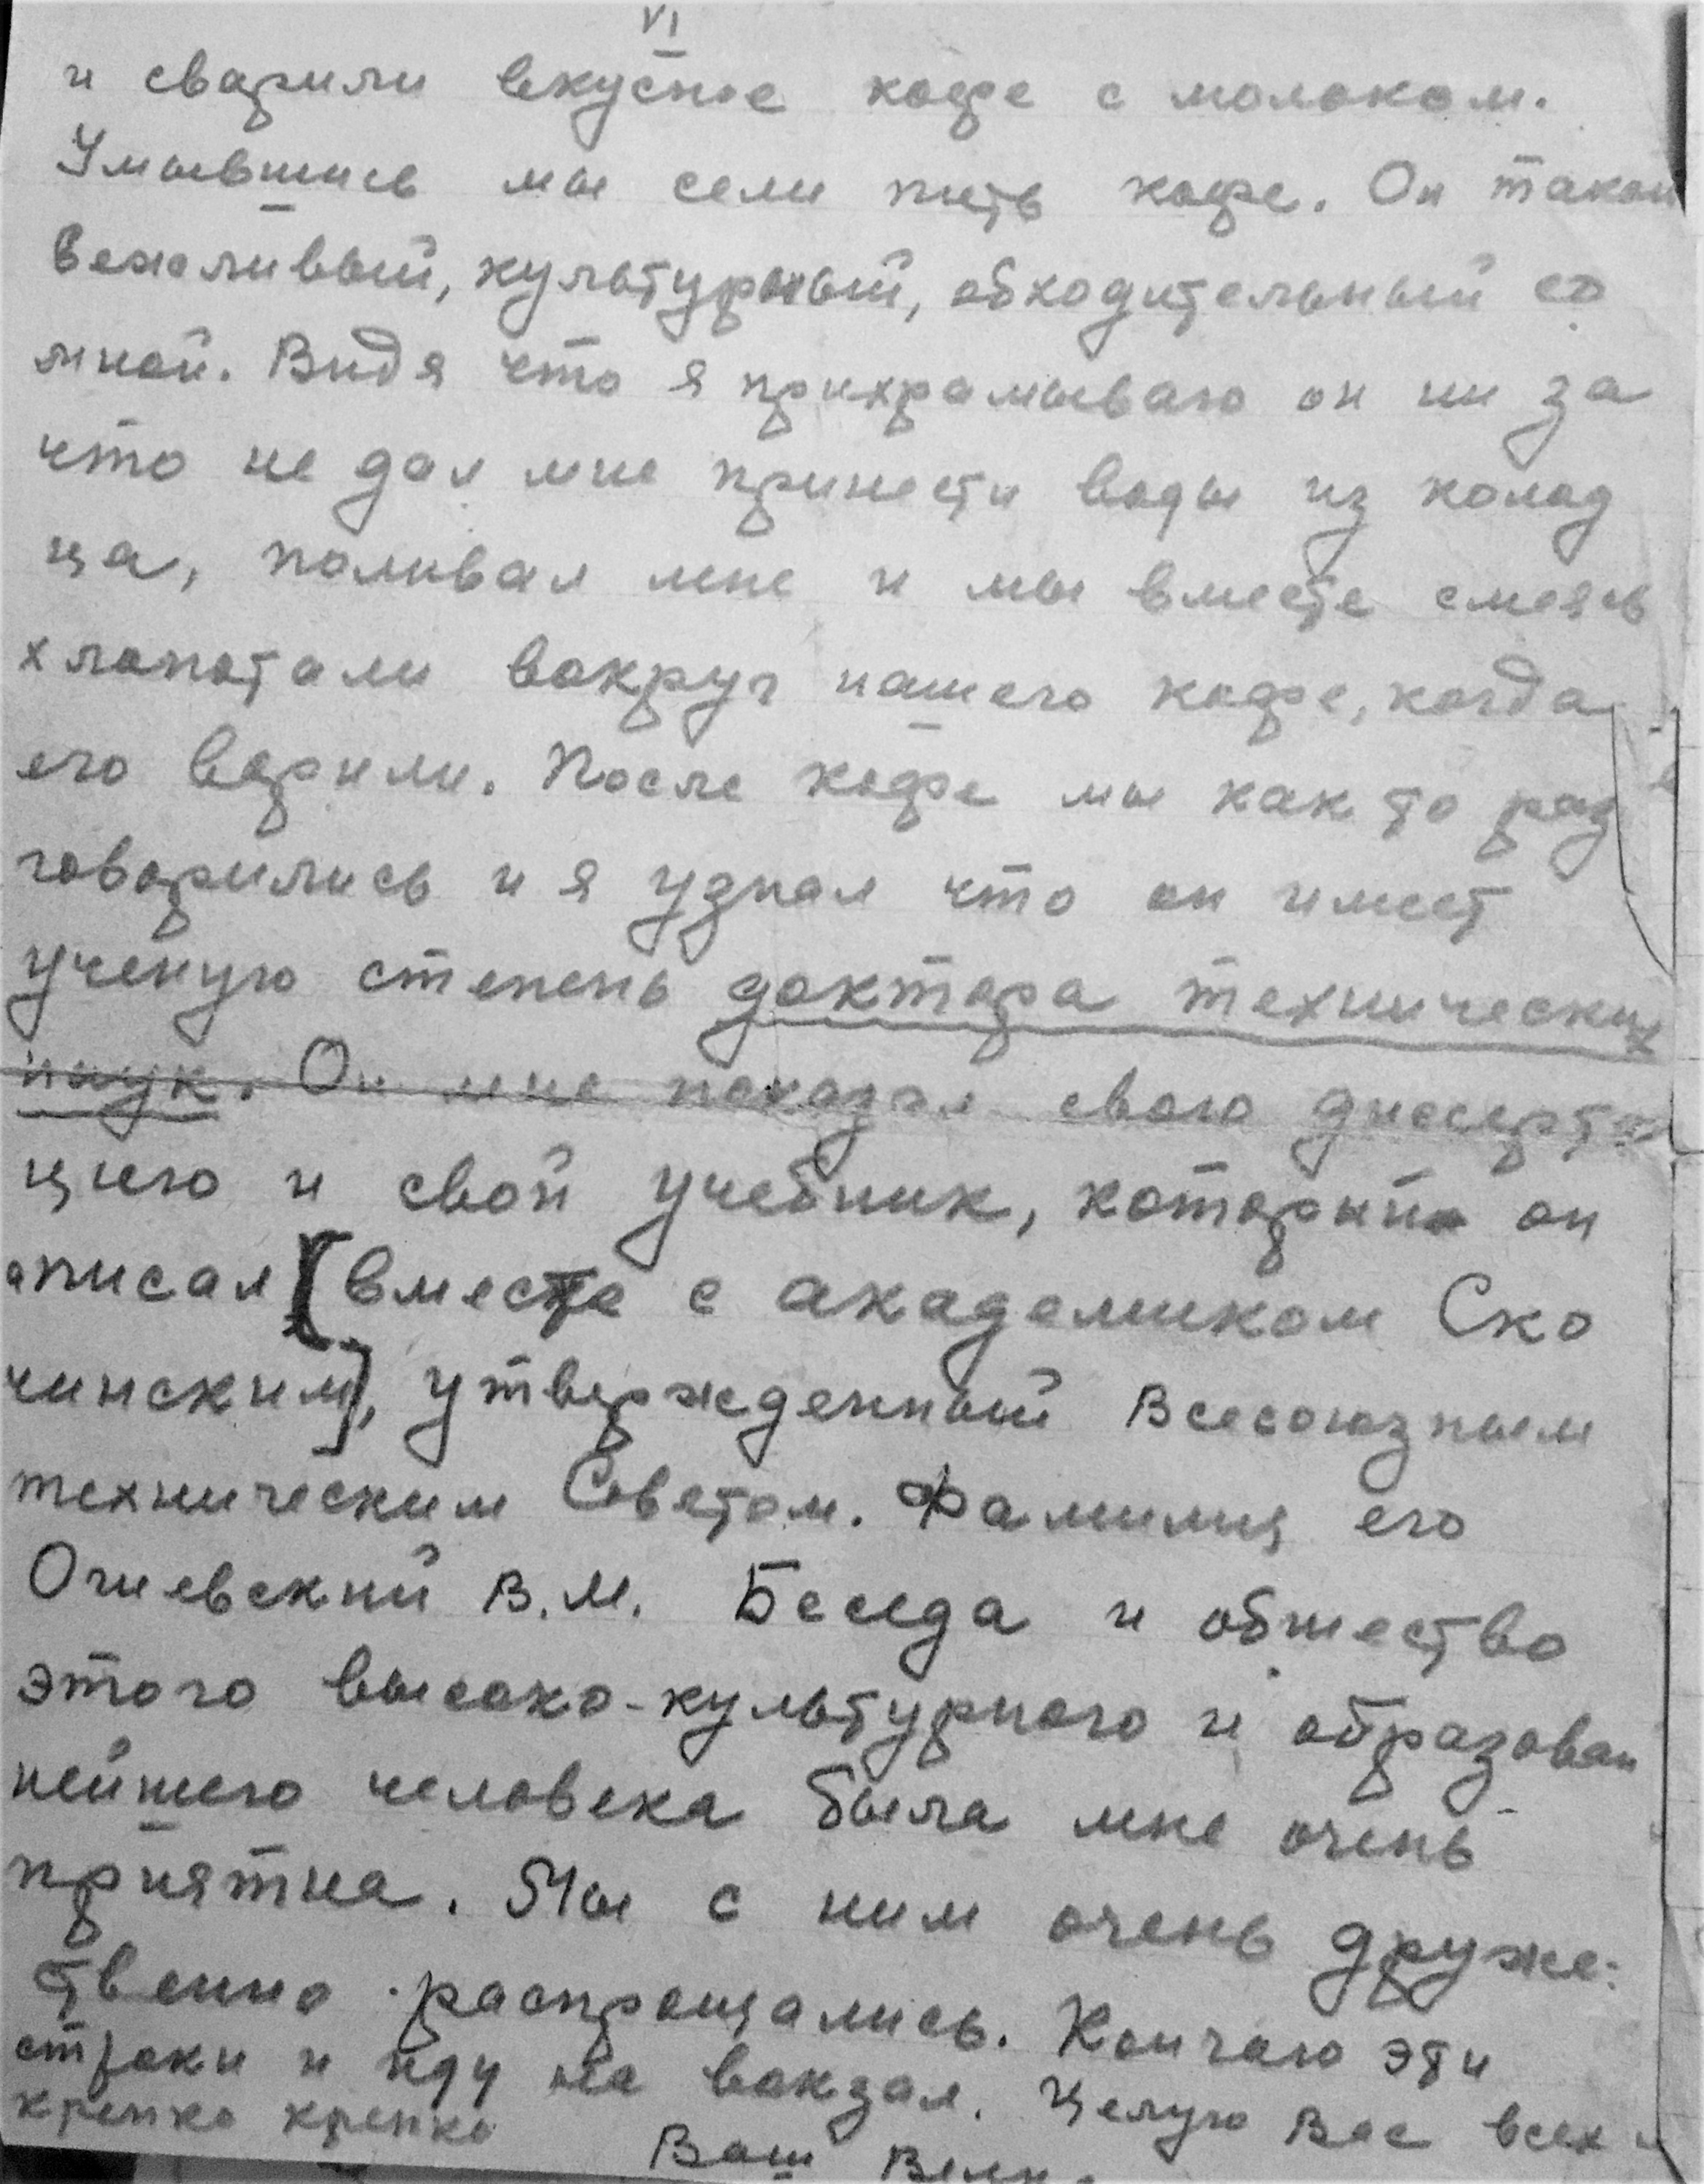 VI
и сварили вкусное кофе с молоком.
Умывшись мы сели пить кофе. Он такой
вежливый, культурный, обходительный со
мной. Видя что я прихрамываю он ни за
что не дал мне принести воды из колод
ца, поливал мне и мы вместе смеясь
хлопотали вокруг нашего кофе, когда
его варили. После кофе мы как то раз
говорились и я узнал что он имеет
ученую степень доктора технических
наук. Он мне показал свою диссерта
цию и свой учебник, который он
написал [вместе с академиком Ско
чинским], утвержденный Всесоюзным
техническим Советом. Фамилия его
Огиевский В.М. Беседа и общество
этого высоко-культурного и образован
нейшего человека была мне очень
приятна. Мы с ним очень друже-
твенно распрощались. Кончаю эти
строки и иду на вокзал. Целую Вас всех
крепко крепко
Ваш